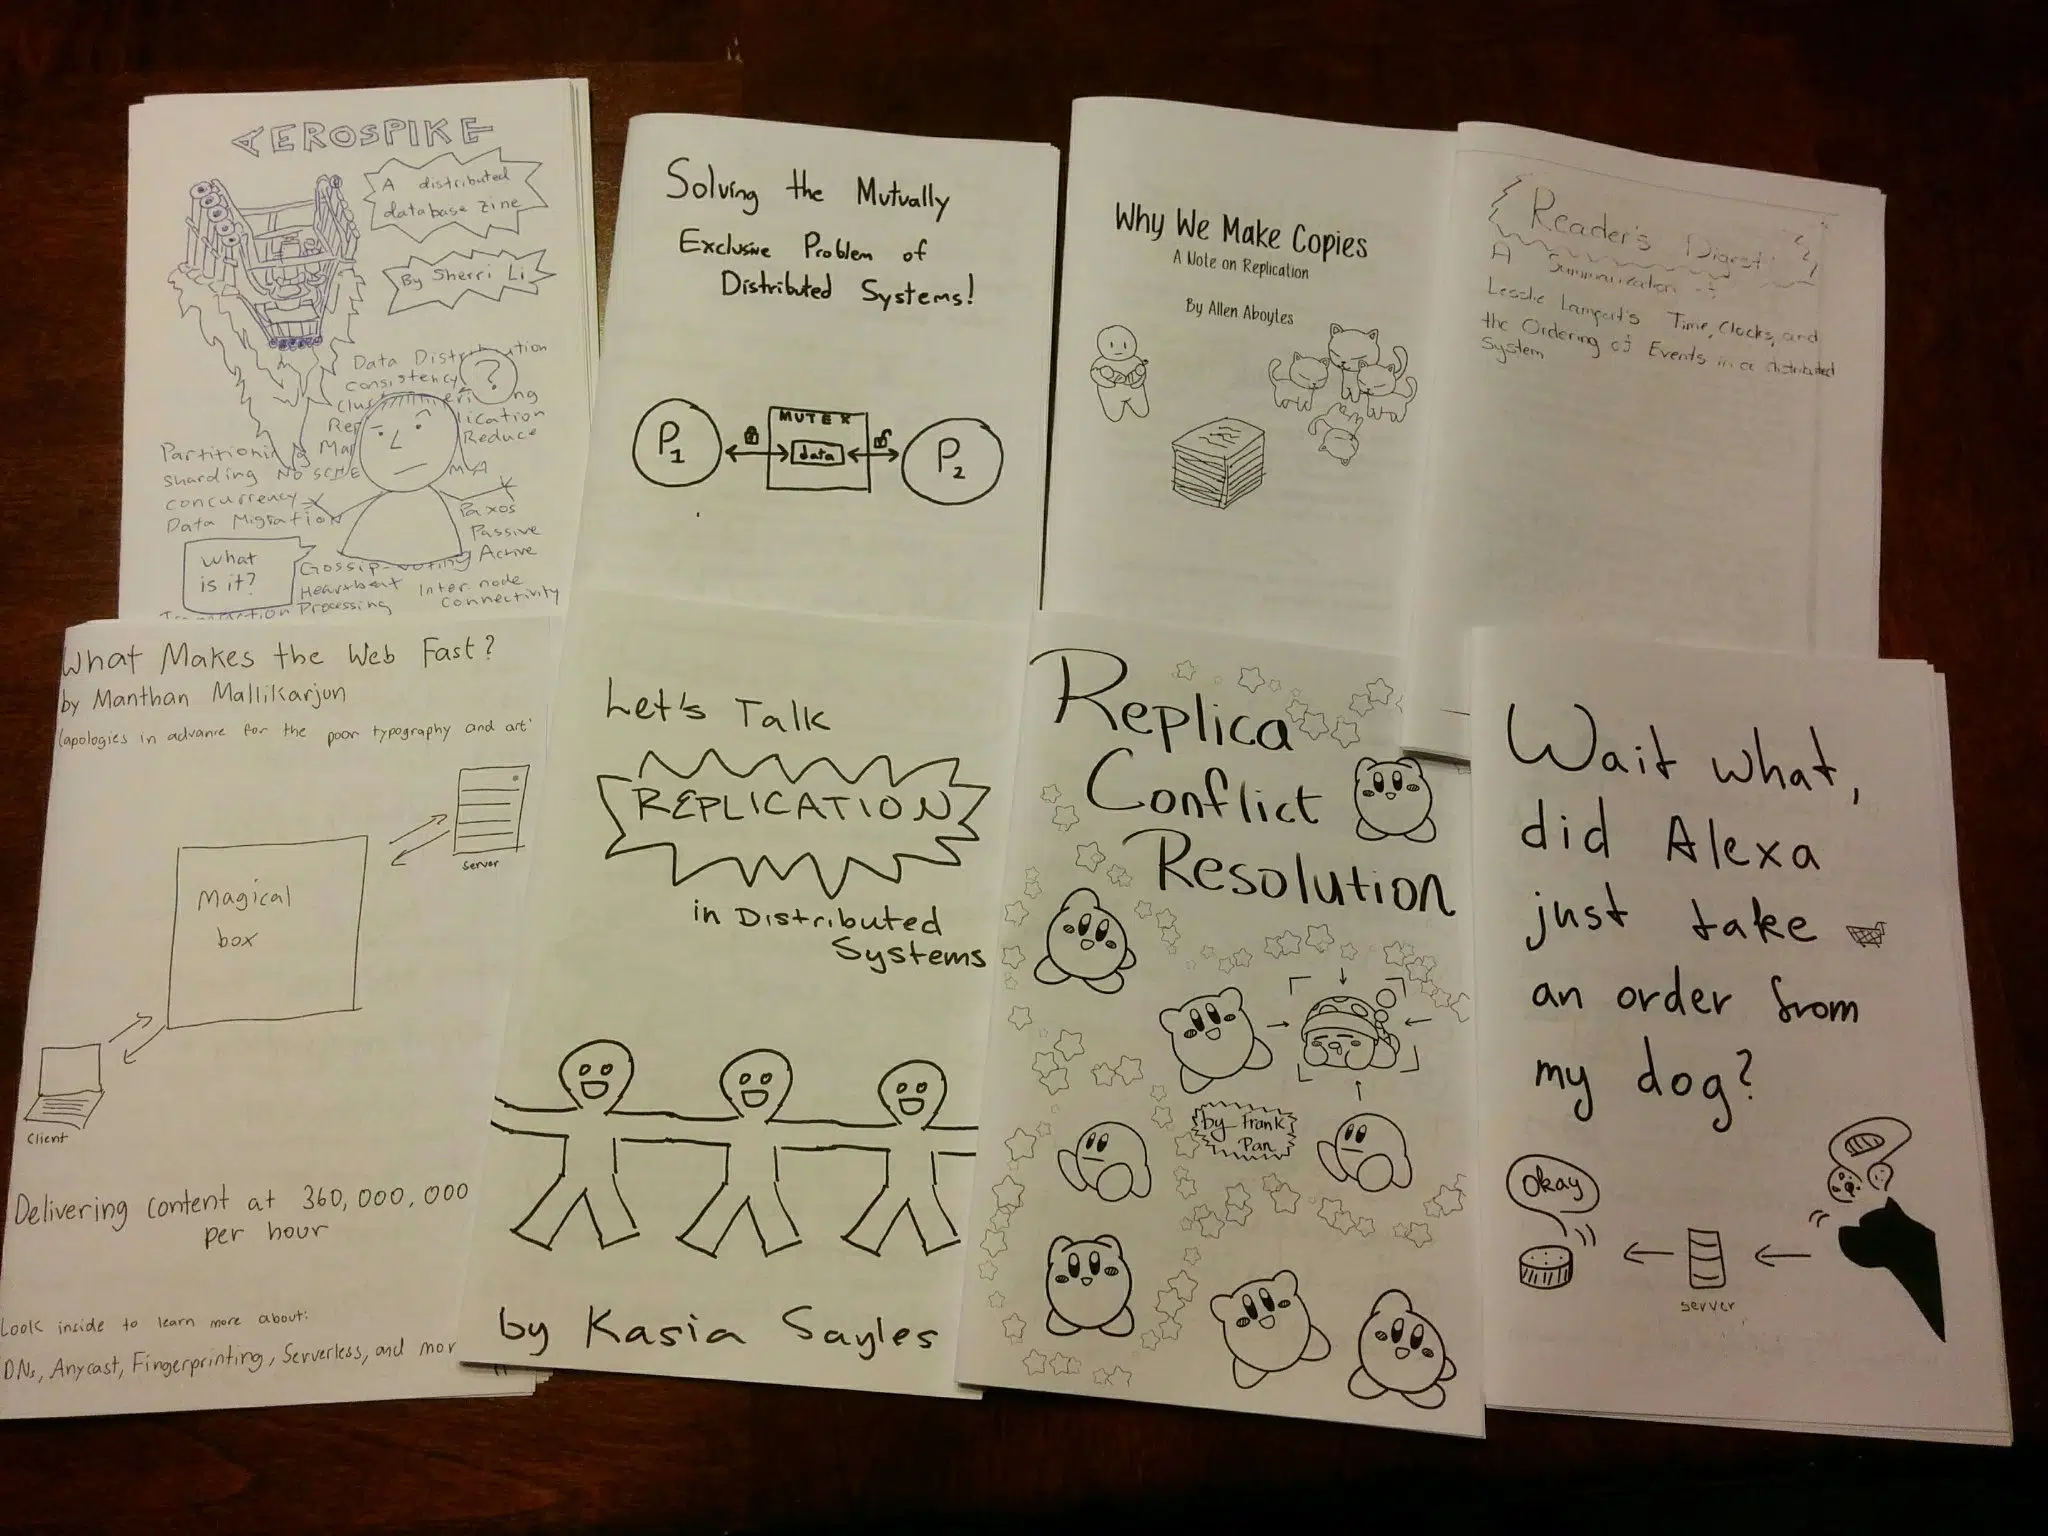 AEROSPIKE
A distributed
database zine
By Sherri Li
Data Distribution
consistency
?
Partitioning
sharding
concurrency
Data Migration
Reduce
Paxos
Passive
Active
What
is it?
Gossip-voting
Heartbeat
Inter node
Connectivity
Processing
Solving the Mutually
Exclusive Problem of
Distributed Systems!
P1
MUTEX
data
P2
Why We Make Copies
A Note on Replication
By Allen Aboytes
Reader's Digest
A Summarization of
Leslie Lamport's Time, Clocks, and
the Ordering of Events in a distributed
System
What Makes the Web Fast?
by Manthan Mallikarjun
(apologies in advance for the poor typography and art
server
Magical
box
Client
Delivering content at 360,000,000
per hour
Look inside to learn more about:
DNS, Anycast, Fingerprinting, Serverless, and mor
Let's Talk
REPLICATION
in Distributed
Systems
by Kasia Sayles
Replica
Conflict
Resolution
by Frank
Pan
Wait what,
did Alexa
just take
an order from
my dog?
Okay
server